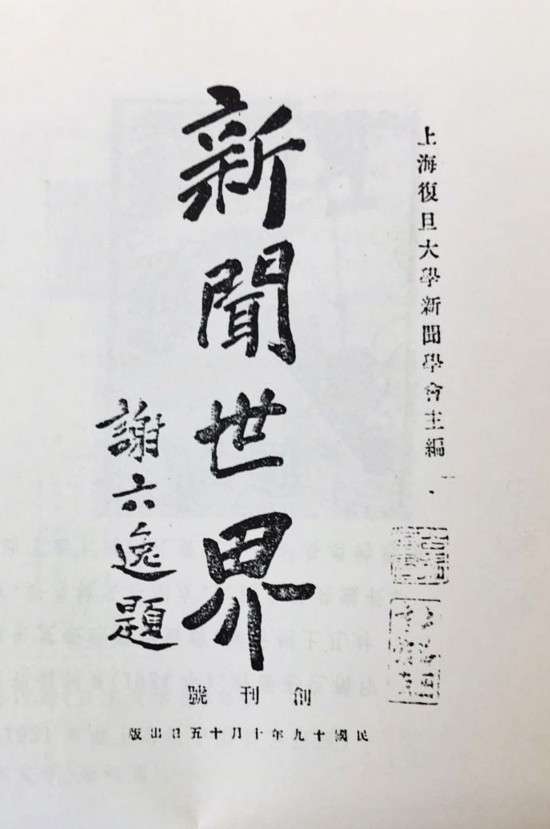 上海復旦大學新聞學會主編
新聞世界
謝六逸題
創刊號
民國十九年十月十五日出版